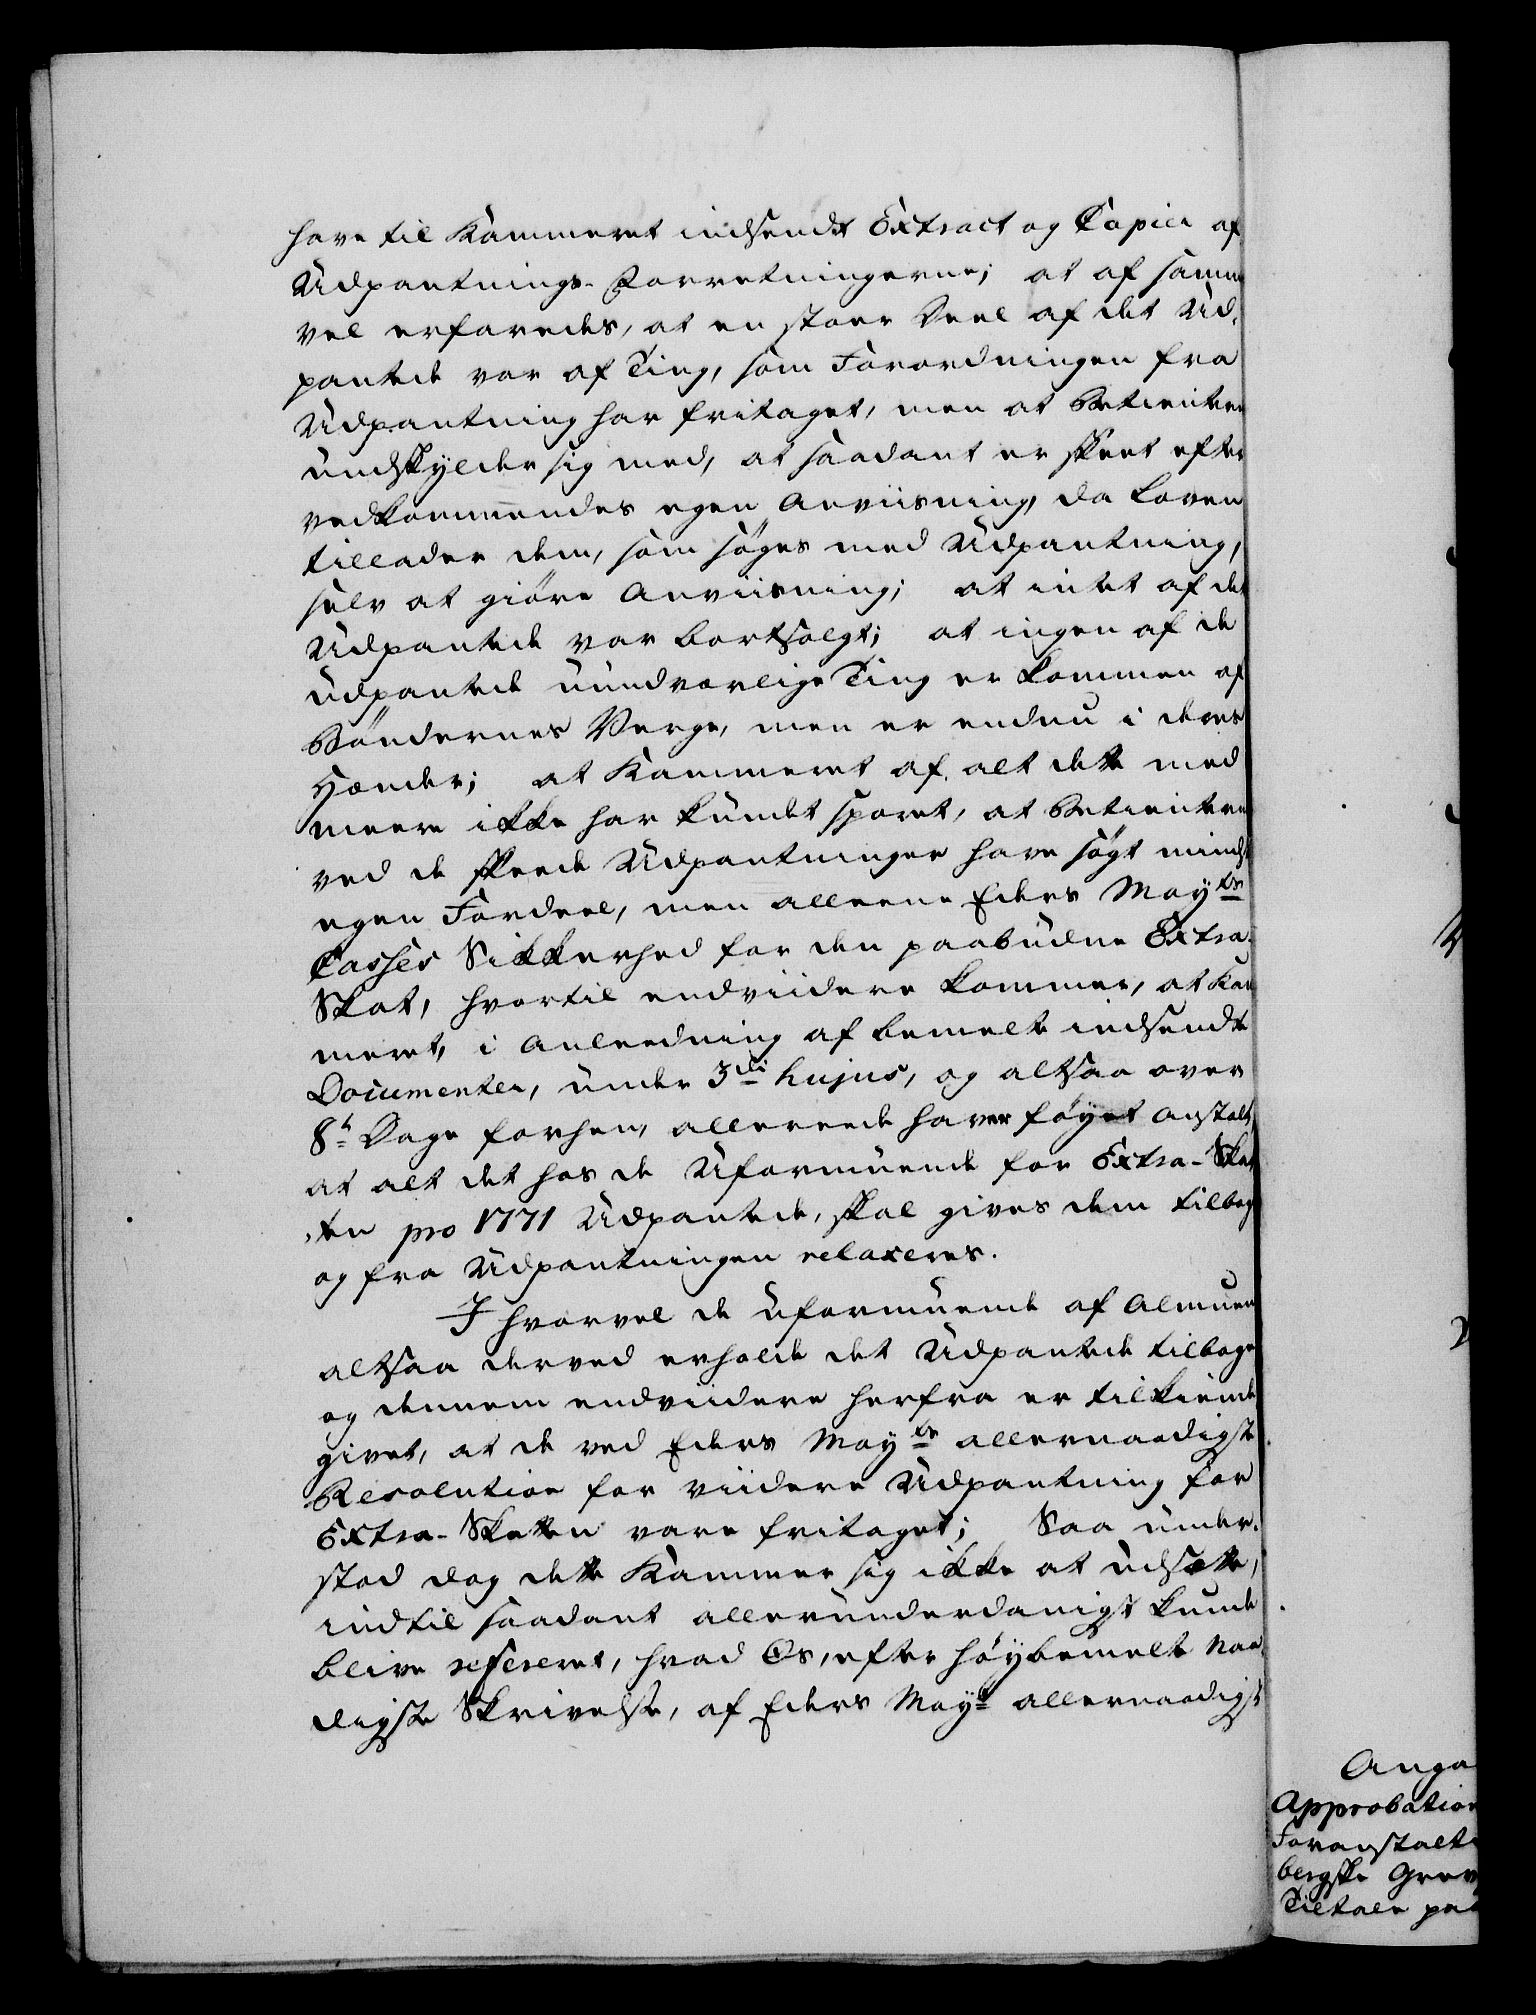 have til Kammeret indsendt Extract og Copier af
Udpantnings-Forretningerne; at af samme
vel erfaredes, at en stoer Deel af det Ud-
pantede var af Ting, som Forordningen fra
Udpantning har fritaget, men at Betienter
undskylder sig med, at saadant er skeet efter
vedkommendes egen Anviisning, da Loven
tillader dem, som søges med Udpantning,
selv at giøre Anviisning; at intet af det
Udpantede var bortsolgt; at ingen af de
udpantede uundværlige Ting er kommen af
Bøndernes Verge, men er endnu i deres
Hænder; at Kammeret af alt dette med
meere ikke har kundet sporet, at Betientere
ved de skeede Udpantninger have søgt mindste
egen Fordeel, men alleene Eders May.ts
Casses Sikkerhed for den paabudne Extra-
Skat, hvortil endviidere kommer, at Kam
meret, i Anleedning af bemelte indsendte
Documenter, under 3die hujus, og altsaa over
8te Dage forhen, allereede haver føyet Anstalt,
at alt det hos de Uformuende for Extra-Skat
ten pro 1771 Udpantede, skal gives dem tilbage
og fra Udpantningen relaxeres.
I hvorvel de uformuende af Almuen
altsaa derved erholde det Udpantede tilbage
og dennem endviidere herfra er tilkiende
givet, at de ved Eders May.ts allernaadigste
Resolution for viidere Udpantning for
Extra-Skatten vare fritaget; Saa under-
stod dog dette Kammer sig ikke at udsætte,
indtil saadant allerunderdanigst kunde
blive refereret, hvad Os, efter høybemelte Naa-
digste Skrivelse, af Eders May.t allernaadigst
Anga
Approbation
Foranstalt
bergske Grev
Tiltale paa